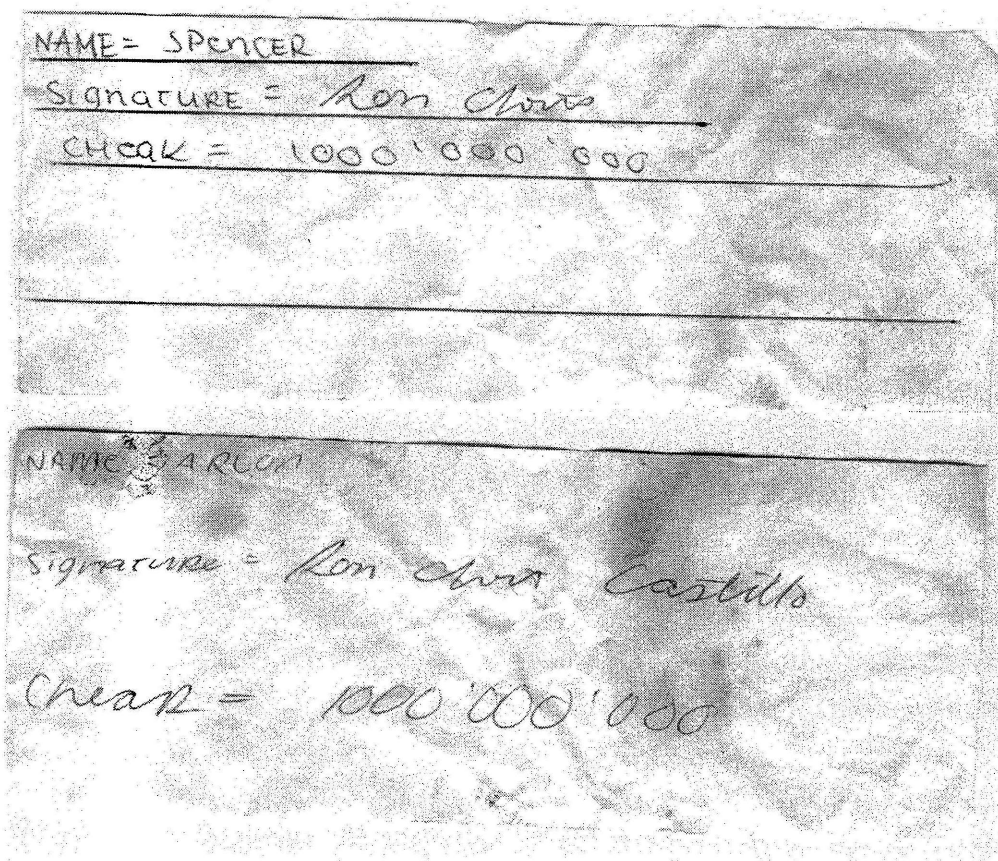 NAME = SPENCER
SignATURE = Ron Chris
CHEAK = 1000'000'000
NAME
Signature = Ron Chris Castillo
Cheak = 1000'000'000